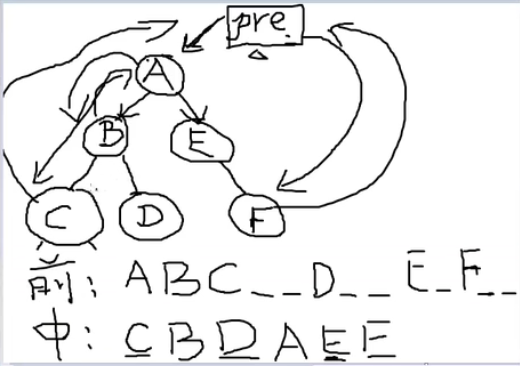 pre
A
B E
C D F
前: ABC__D__ E_F__
中: CBDAEE